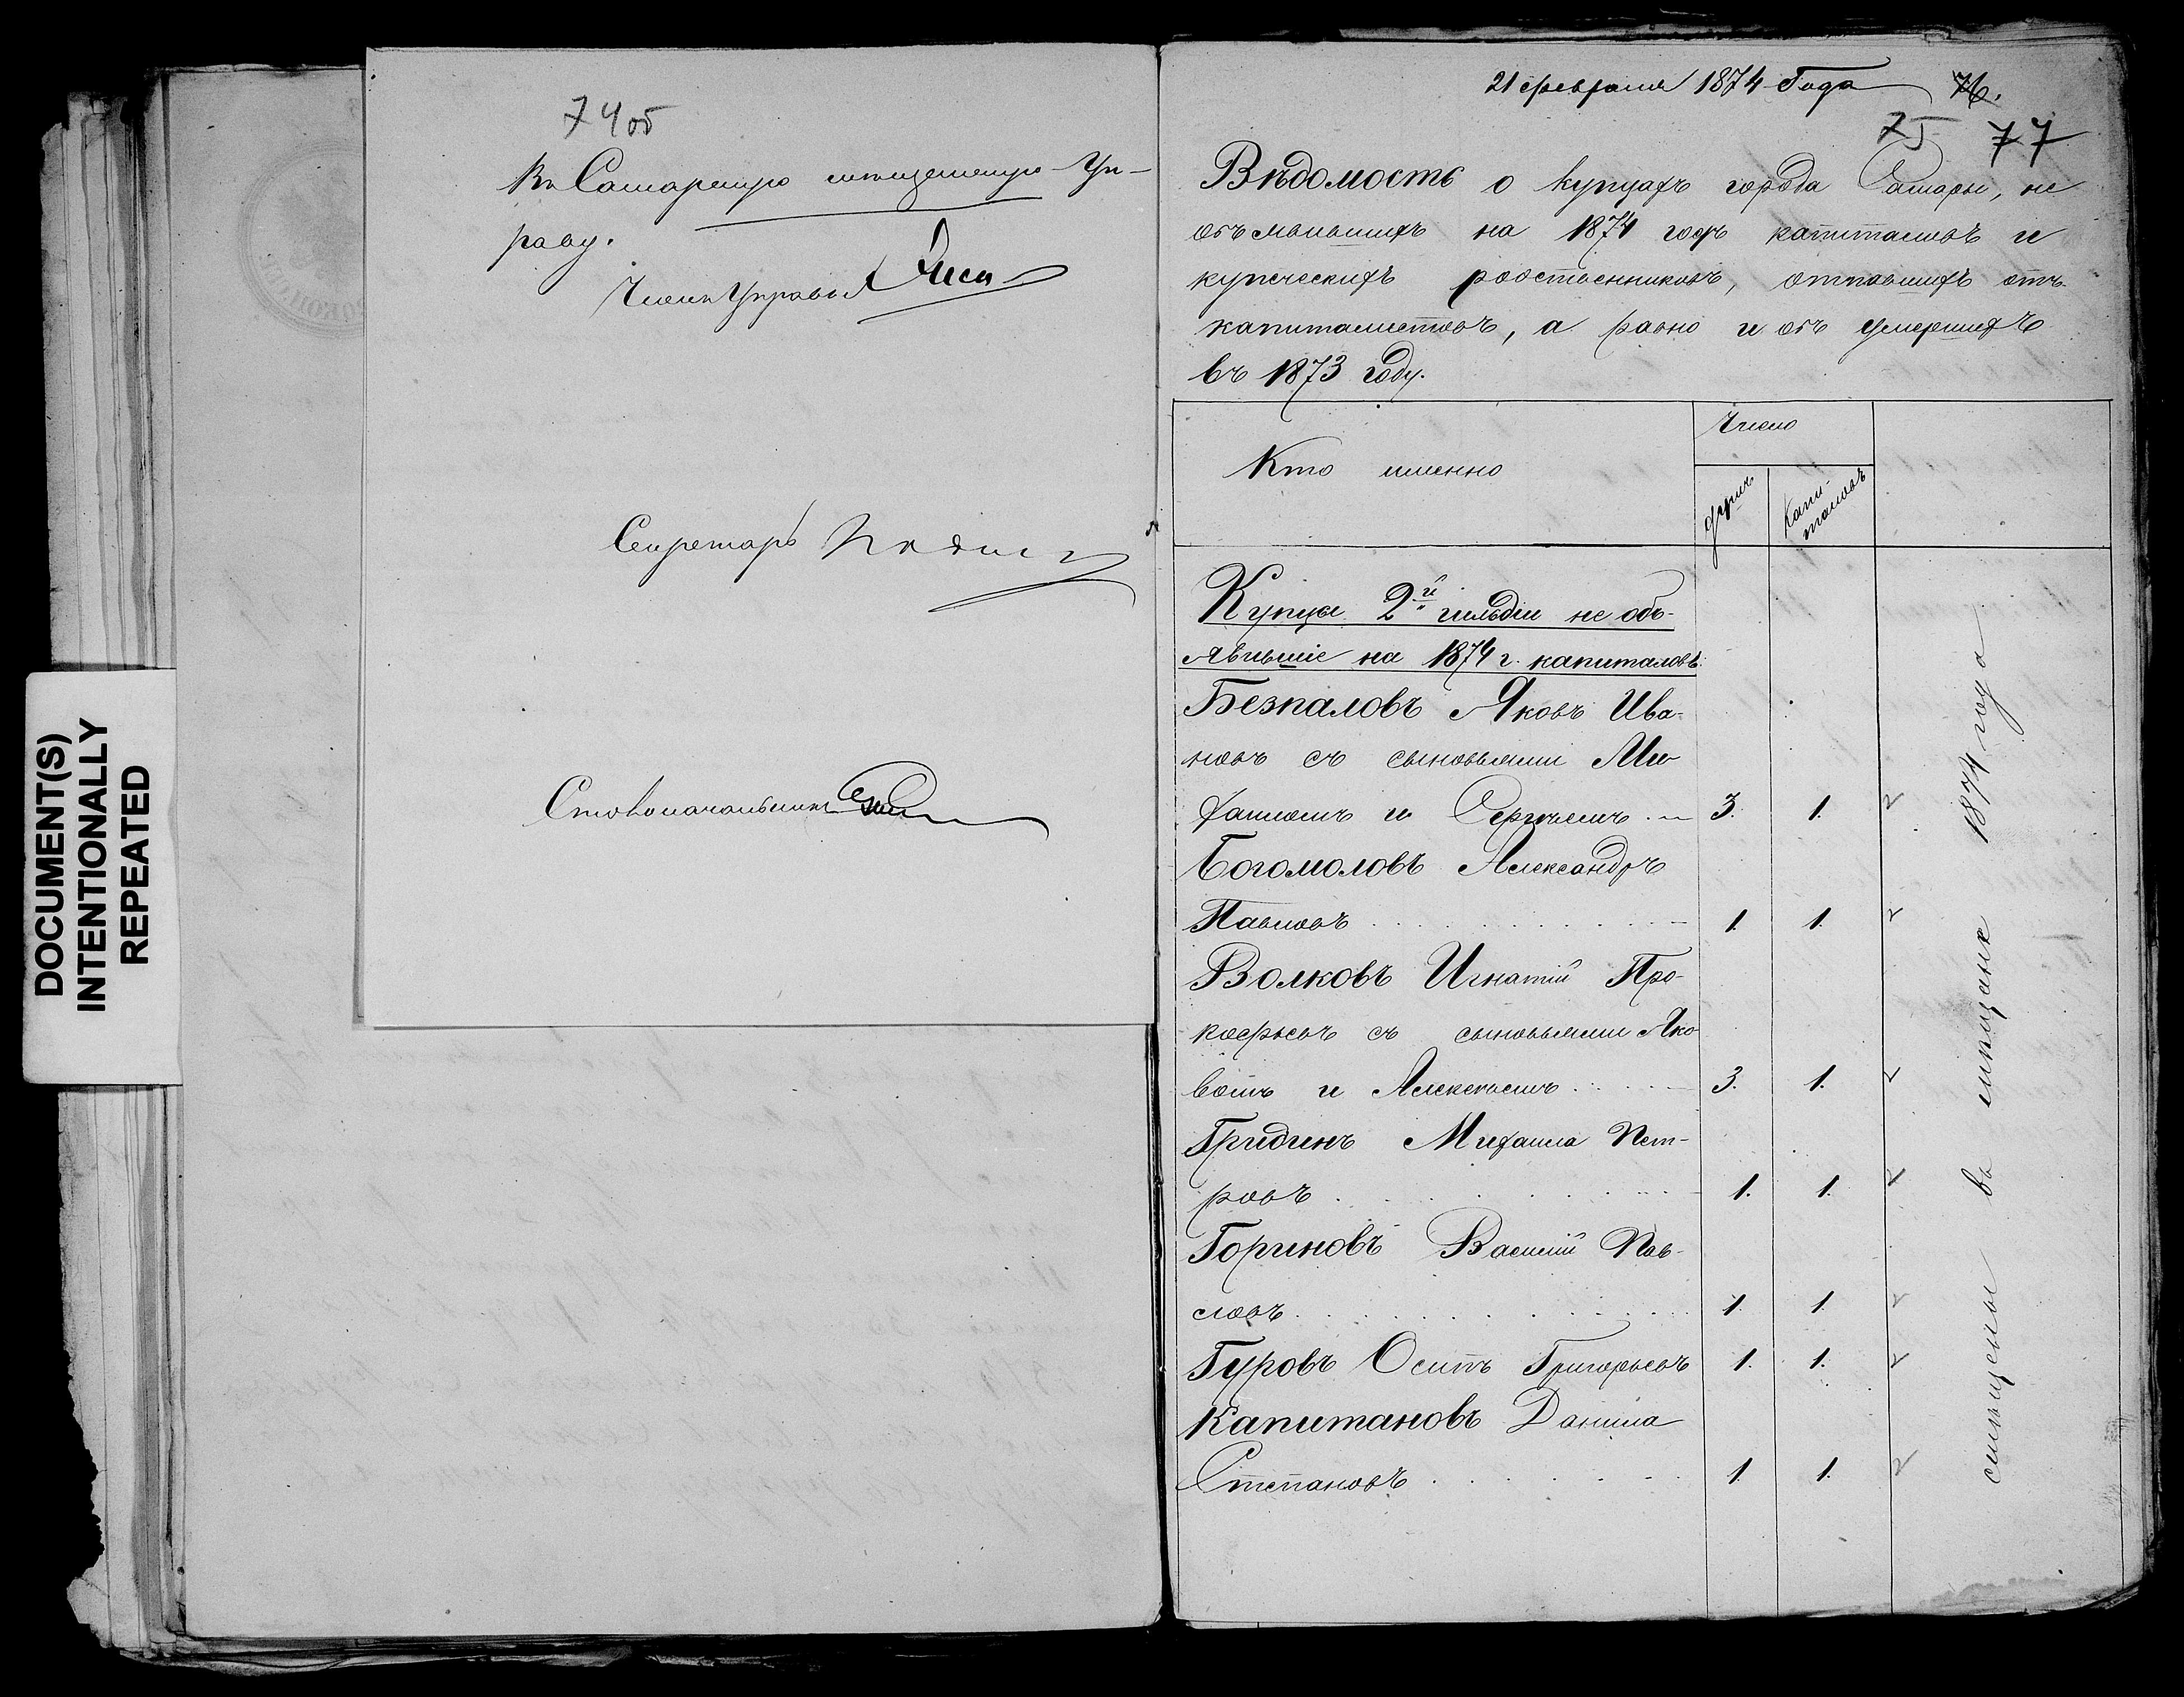 DOCUMENT(S)
INTENTIONALLY
REPEATED
74об
Въ Самарскую мещанскую Уп-
раву.
Членъ Управы
Секретарь
Столоначальникъ
21 февраля 1874 Года 76.
75 77
Вѣдомость о купцахъ города Самары, не
объявившихъ на 1874 годъ капиталовъ и
купеческихъ родственниковъ, отпавшихъ отъ
капиталистовъ, а равно и объ умершихъ
въ 1873 году.
Кто именно
Число
душъ
Капи-
таловъ
Купцы 2й гильдіи не объ-
явившіе на 1874 г. капиталовъ.
Безпаловъ Яковъ Ива-
новъ съ сыновьями Ми
хаиломъ и Сергѣемъ 3. 1.
Богомоловъ Александръ
Павловъ 1. 1.
Волковъ Игнатій Про-
кофьевъ съ сыновьями Яко
вомъ и Алексѣемъ 3. 1.
Гридинъ Михаила Пет-
ровъ 1. 1.
Гориновъ Василій Пав-
ловъ 1. 1.
Гуровъ Осипъ Григорьевъ 1. 1.
Капитановъ Данила
Степановъ 1. 1.
въ мѣщане 1874 года